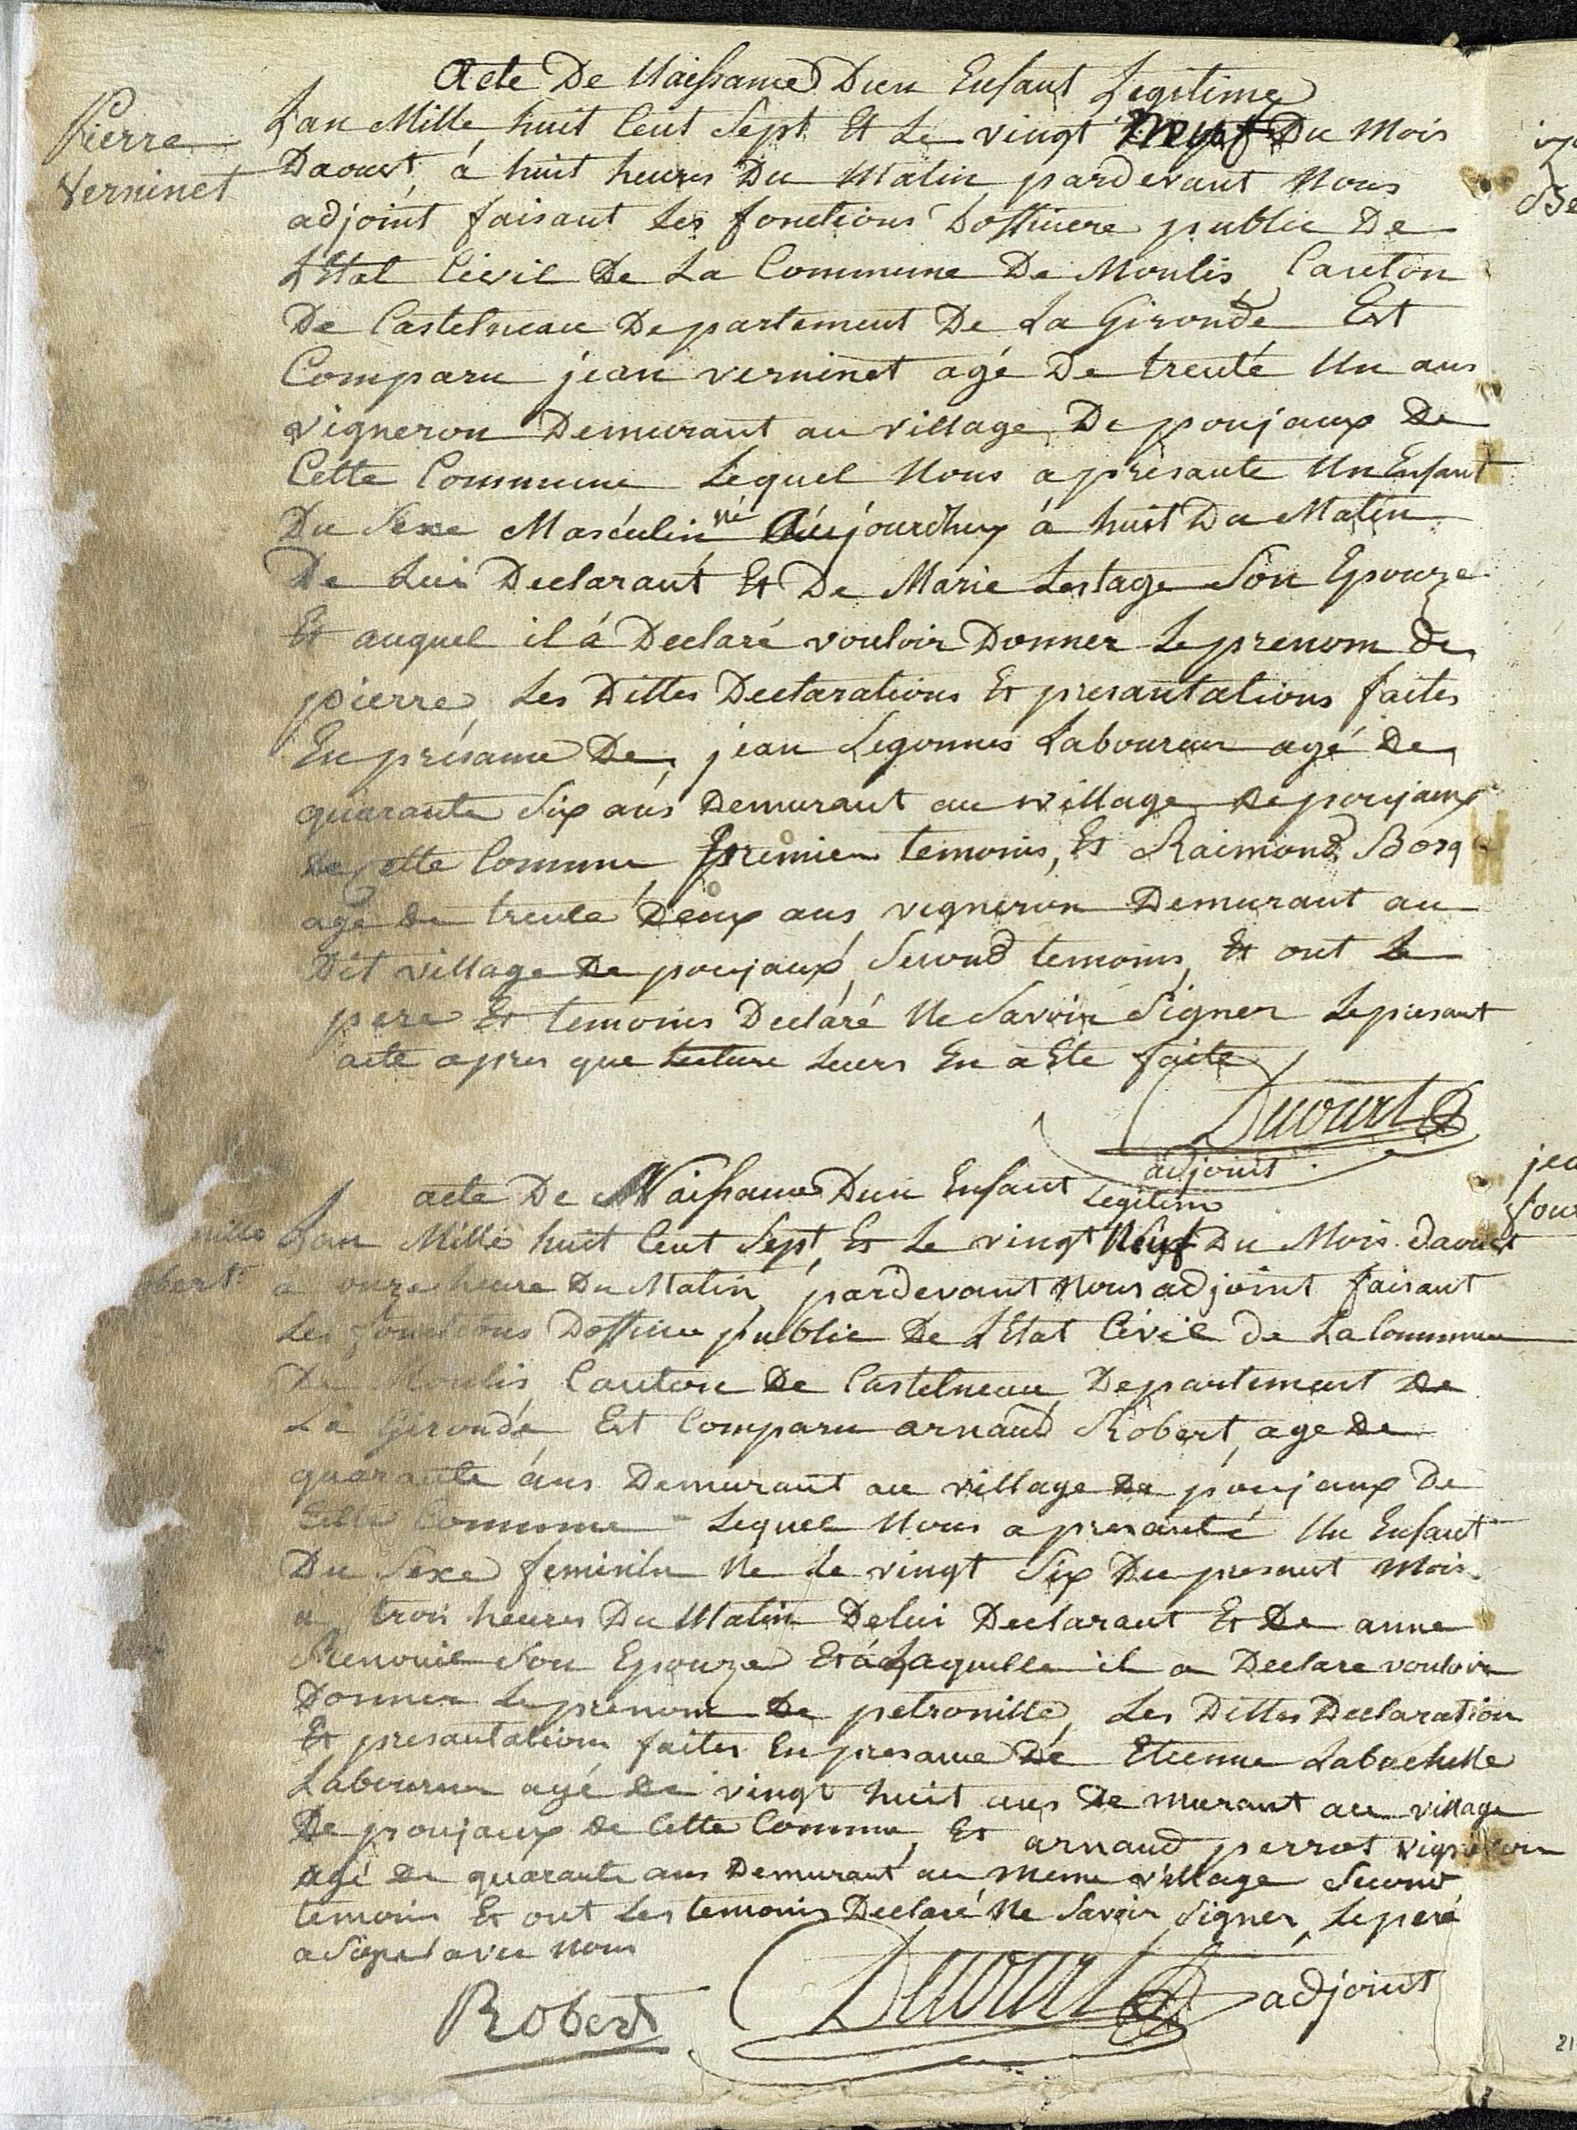 Acte De Naissance Dun Enfant Legitime
Pierre
Verninet
Lan Mille huit Cent Sept Et Le vingt Neuf Du Mois
Daoust, à huit heures Du Matin, pardevant Nous
adjoint faisant Les fonctions Dofficiere public De
LEtat Civil De La Commune De Moulis, Canton
De Castelneau Departement De La Gironde Est
Comparu jean verninet agé De trente Un ans
vigneron Demurant au village De poujaux De
Cette Commune Lequel Nous a présanté Un Enfant
Du Sexe Masculin né Aujourdhuy à huit Du Matin
De Lui Declarant Et De Marie Lestage Son Epouze
Et auquel il á Declaré vouloir Donner Le prenom De
pierre, Les Dittes Declarations Et presantations faites
En présance De, jean Segonnes Laboureur agé De
quarante Six ans Demurant au village De poujaux
de Cette Commune Premier temoins, Et Raimond Bosq
agé de trente Deux ans, vigneron Demurant au
Dit village De poujaux, Second temoins, Et ont Le
pere Et temoins Declaré Ne Savoir Signer Le presant
acte apres que Lecture Leurs En a Ete faite
Ducourt
adjoint
acte De Naissance Dun Enfant Legitime
nille
obert
Lan Mille huit Cent Sept, Et Le vingt Neuf Du Mois daoust
a onze heure Du Matin, pardevant Nous adjoint faisant
Les fonctions Dofficier public De LEtat Civil de La Commune
De Moulis, Canton De Castelneau, Departement De
La Gironde, Est Comparu arnaud Robert, age De
quarante ans Demurant au village De poujaux De
Cette Commune Lequel Nous a presanté Un Enfant
Du Sexe feminin Ne Le vingt Six Du presant Mois
a trois heures Du Matin De lui Declarant Et De anne
Renouil Son Epouze Et á Laquelle il a Declare vouloir
Donner Le prenom De petronille, Les Dittes Declaration
Et presantation faites En presance De Etienne
Laboureur agé De vingt huit ans De murant au village
De poujaux De Cette Commune, Et arnaud perrot vigneron
agé De quarante ans Demurant au meme village Second
temoins Et ont Les temoins Declaré Ne Savoir Signer, Le pere
a Signé avec nous
Robert
Ducourt adjoint
jea
21